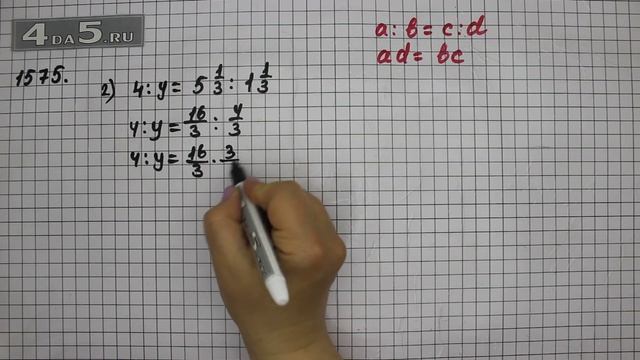 4DA5.RU
1575.
2) 4 : y = 5 1/3 : 1 1/3
4 : y = 16/3 : 4/3
4 : y = 16/3 · 3/
a : b = c : d
ad = bc